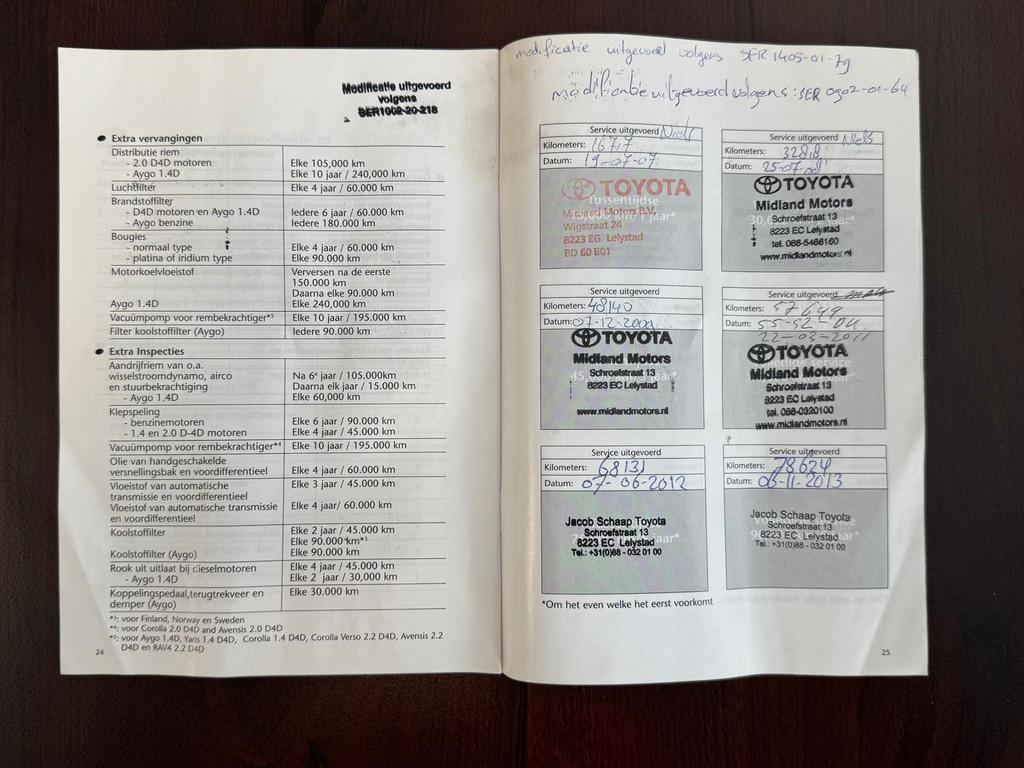 Modificatie uitgevoerd
volgens
SER1002-20-218
Extra vervangingen
Distributie riem
- 2.0 D4D motoren Elke 105,000 km
- Aygo 1.4D Elke 10 jaar / 240,000 km
Luchtfilter Elke 4 jaar / 60.000 km
Brandstoffilter
- D4D motoren en Aygo 1.4D Iedere 6 jaar / 60.000 km
- Aygo benzine Iedere 180.000 km
Bougies
- normaal type Elke 4 jaar / 60.000 km
- platina of iridium type Elke 90.000 km
Motorkoelvloeistof Verversen na de eerste
150.000 km
Daarna elke 90.000 km
Aygo 1.4D Elke 240,000 km
Vacuümpomp voor rembekrachtiger*⁵ Elke 10 jaar / 195.000 km
Filter koolstoffilter (Aygo) Iedere 90.000 km
Extra Inspecties
Aandrijfriem van o.a.
wisselstroomdynamo, airco Na 6ᵉ jaar / 105.000km
en stuurbekrachtiging Daarna elk jaar / 15.000 km
- Aygo 1.4D Elke 60,000 km
Klepspeling
- benzinemotoren Elke 6 jaar / 90.000 km
- 1.4 en 2.0 D-4D motoren Elke 4 jaar / 45.000 km
Vacuümpomp voor rembekrachtiger*⁴ Elke 10 jaar / 195.000 km
Olie van handgeschakelde
versnellingsbak en voordifferentieel Elke 4 jaar / 60.000 km
Vloeistof van automatische Elke 3 jaar / 45.000 km
transmissie en voordifferentieel
Vloeistof van automatische transmissie Elke 4 jaar/ 60.000 km
en voordifferentieel
Koolstoffilter Elke 2 jaar / 45.000 km
Elke 90.000 km*³
Koolstoffilter (Aygo) Elke 90.000 km
Rook uit uitlaat bij dieselmotoren Elke 4 jaar / 45.000 km
- Aygo 1.4D Elke 2 jaar / 30,000 km
Koppelingspedaal,terugtrekveer en Elke 30.000 km
demper (Aygo)
*³: voor Finland, Norway en Sweden
*⁴: voor Corolla 2.0 D4D and Avensis 2.0 D4D
*⁵: voor Aygo 1.4D, Yaris 1.4 D4D, Corolla 1.4 D4D, Corolla Verso 2.2 D4D, Avensis 2.2
D4D en RAV4 2.2 D4D
24
modificatie uitgevoerd volgens SER 1405-01-79
modificatie uitgevoerd volgens: SER 0902-01-64
Service uitgevoerd Niels
Kilometers: 16717
Datum: 19-07-07
TOYOTA
Tussentijdse
Midland Motors B.V.
Wigstraat 24
8223 EG Lelystad
BD 60 B01
Service uitgevoerd Niels
Kilometers: 32818
Datum: 25-07-08
TOYOTA
Midland Motors
Schroefstraat 13
8223 EC Lelystad
tel. 088-5486160
www.midlandmotors.nl
Service uitgevoerd
Kilometers: 48140
Datum: 07-12-2009
TOYOTA
Midland Motors
Schroefstraat 13
8223 EC Lelystad
www.midlandmotors.nl
Service uitgevoerd
Kilometers: 57649
Datum:
22-03-2011
TOYOTA
Midland Motors
Schroefstraat 13
8223 EC Lelystad
tel. 088-0320100
www.midlandmotors.nl
Service uitgevoerd
Kilometers: 68131
Datum: 07-06-2012
Jacob Schaap Toyota
Schroefstraat 13
8223 EC Lelystad
Tel.: +31(0)88 - 032 01 00
Service uitgevoerd
Kilometers: 78624
Datum: 06-11-2013
Jacob Schaap Toyota
Schroefstraat 13
8223 EC Lelystad
Tel.: +31(0)88 - 032 01 00
*Om het even welke het eerst voorkomt
25